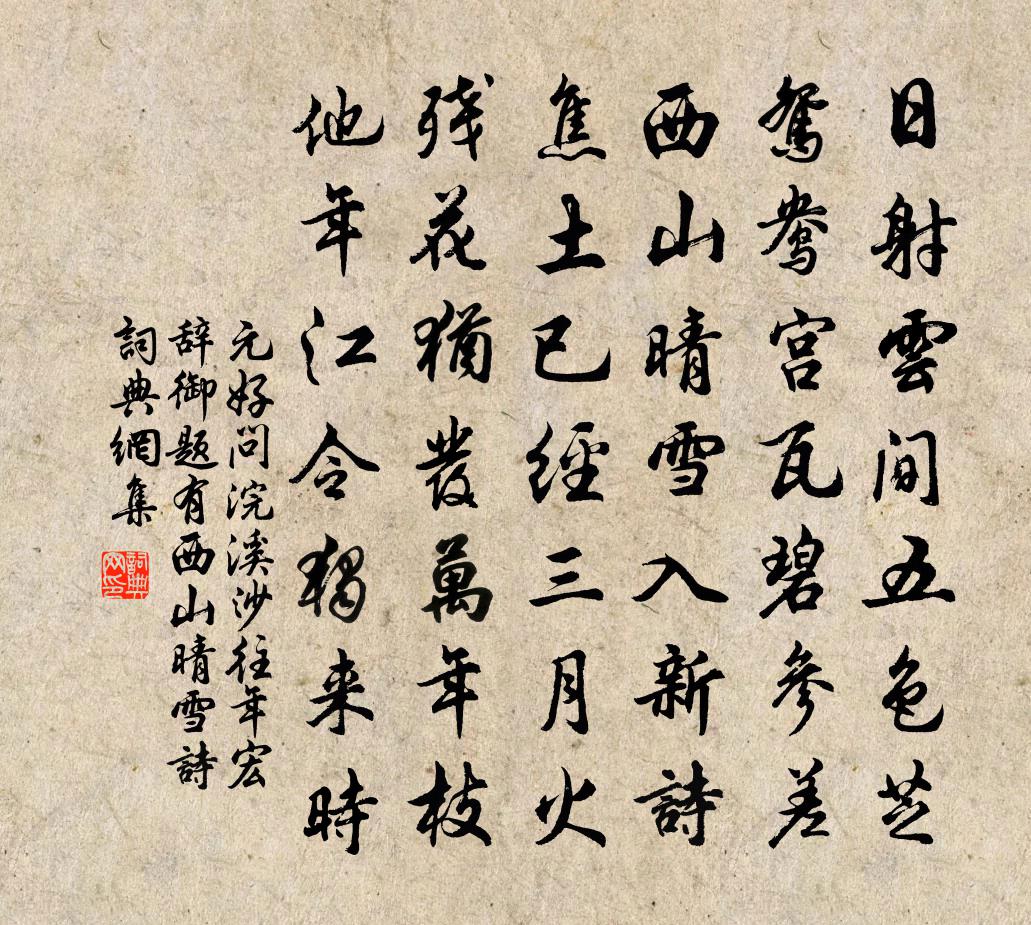 日射雲間五色芝
鴛鴦宫瓦碧參差
西山晴雪入新詩
焦土已經三月火
残花猶發萬年枝
他年江令獨来時
元好問浣溪沙往年宏
辞御题有西山晴雪詩
詞典網集
詞典网印